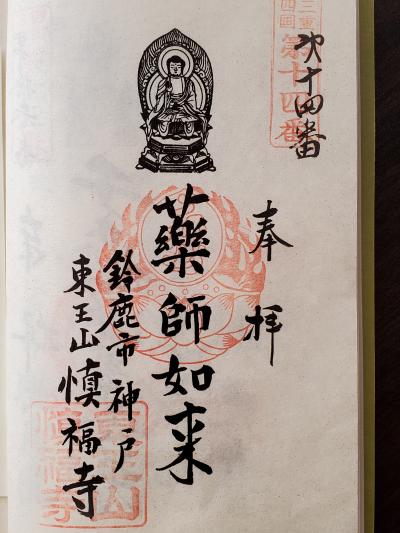 三重
四国
第十四番
次十四番
奉拝
藥師如来
鈴鹿市神戸
東王山慎福寺
東王山
慎福寺